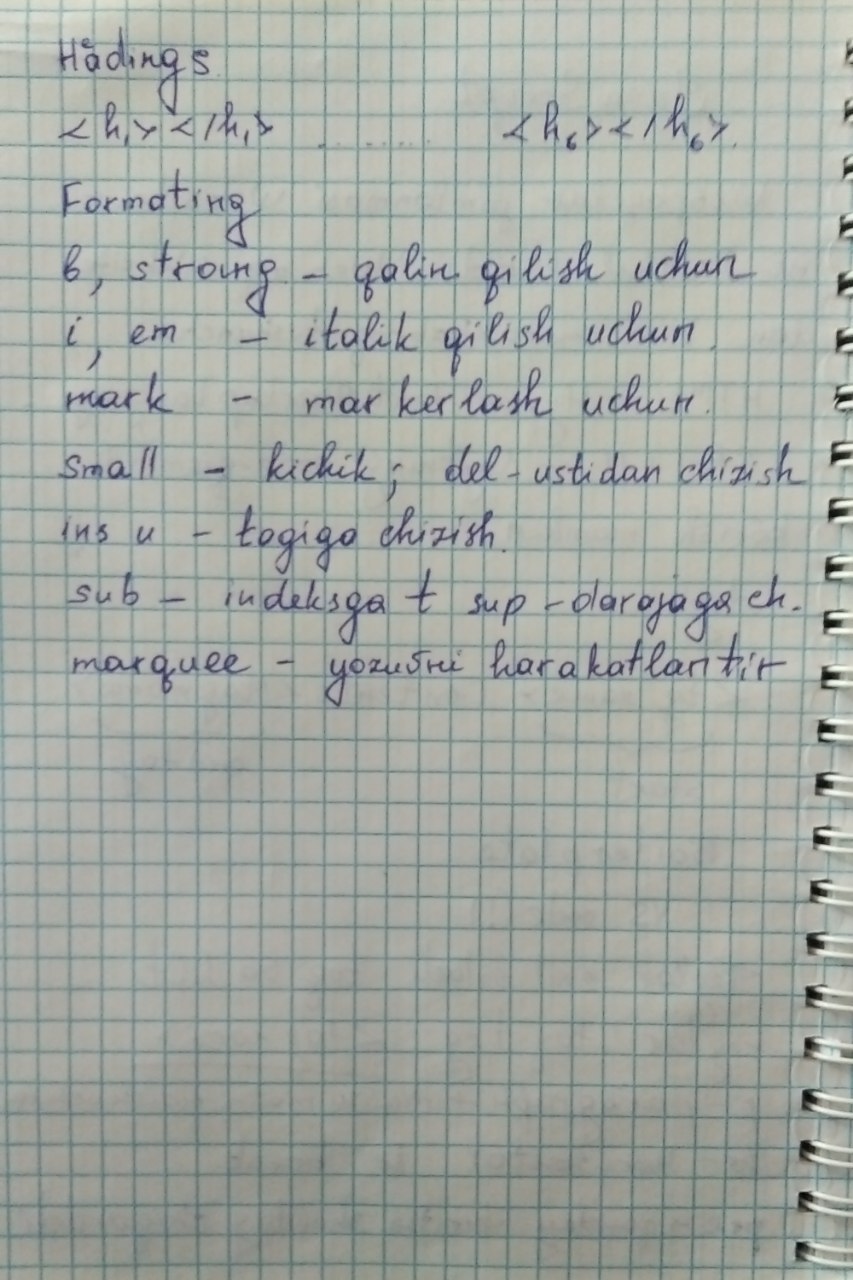 Headings
<h1></h1> ......... <h6></h6>.
Formating
b, stroing - qalin qilish uchun
i, em - italik qilish uchun.
mark - markerlash uchun.
small - kichik; del - ustidan chizish
ins u - tagiga chizish.
sub - indeksga t sup - darajaga ch.
marquee - yozuvni harakatlantir